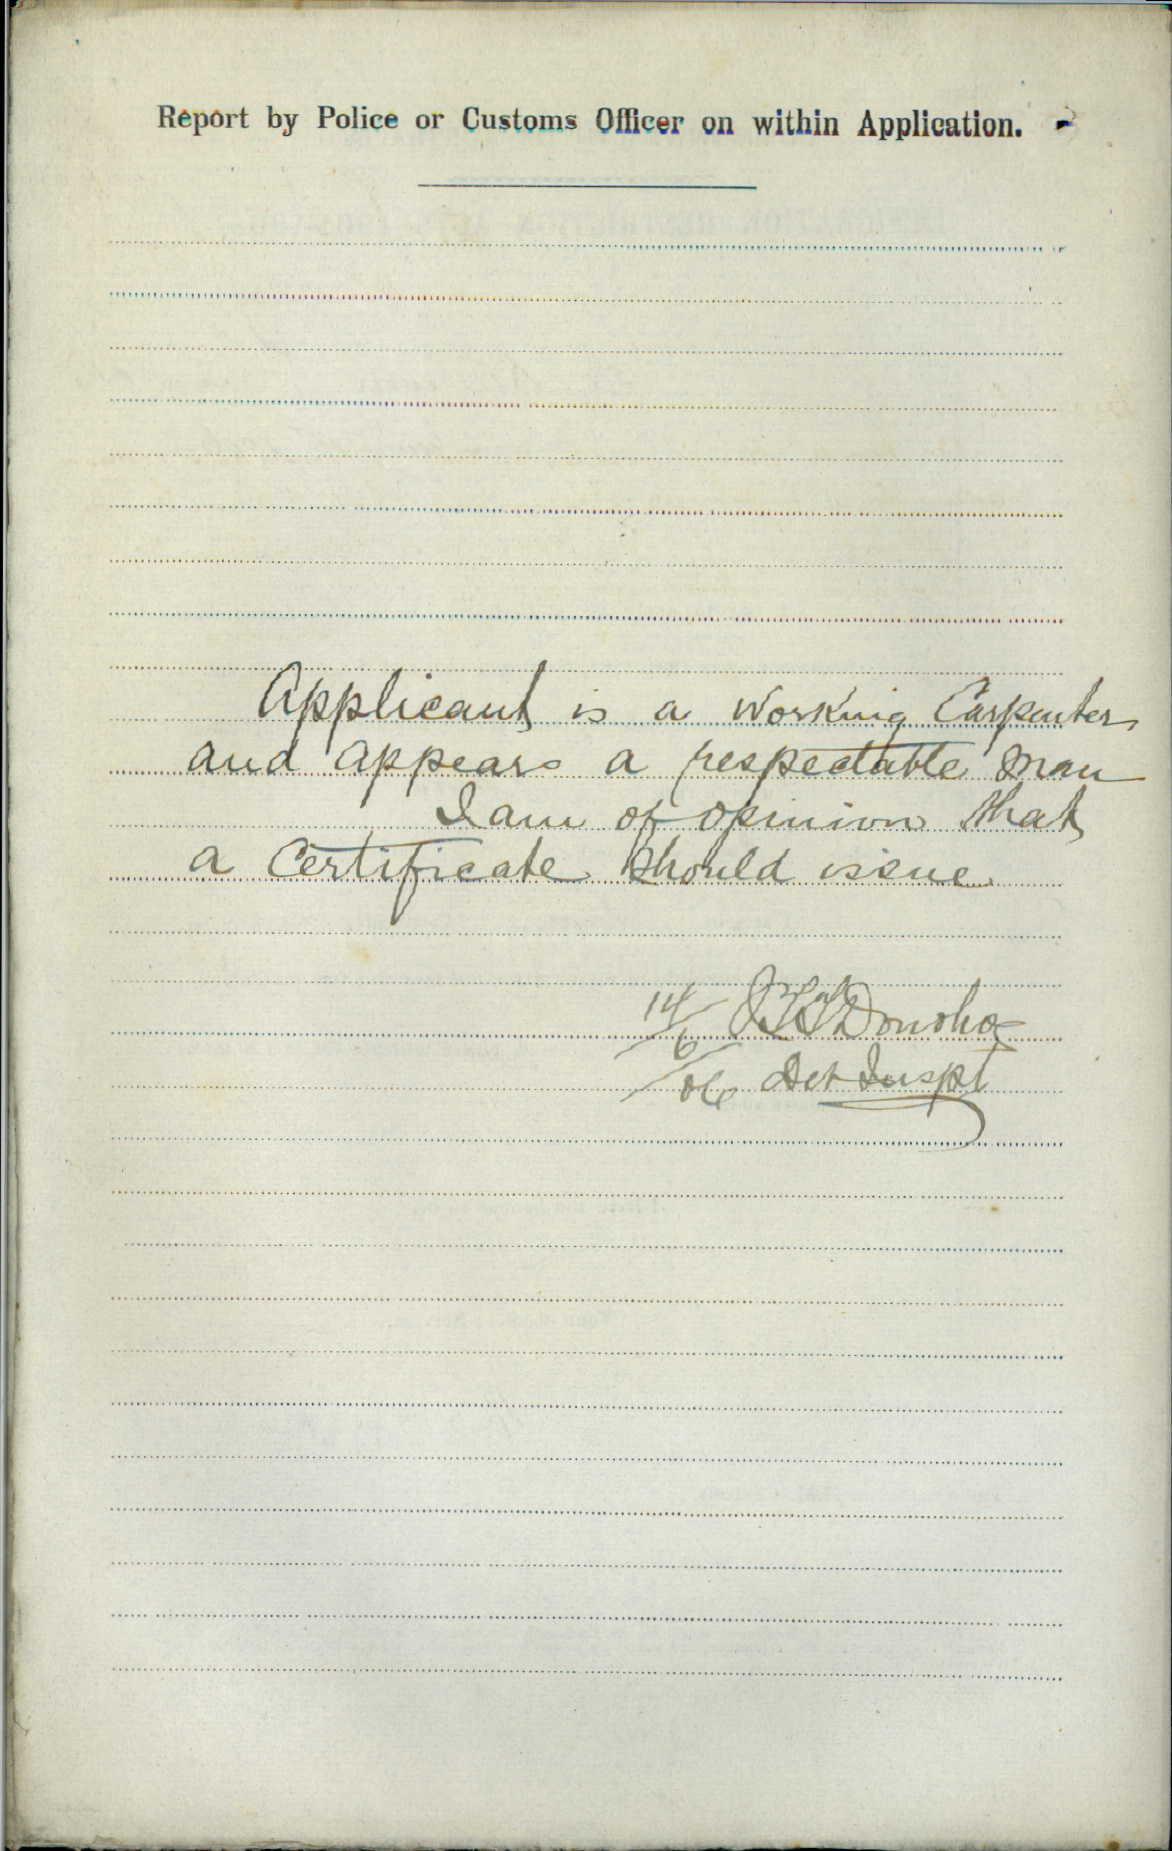 Report by Police or Customs Officer on within Application.
Applicant is a Working Carpenter
and appears a respectable man
I am of opinion that
a Certificate should issue
14/6/06
Donohoe
Det Inspt